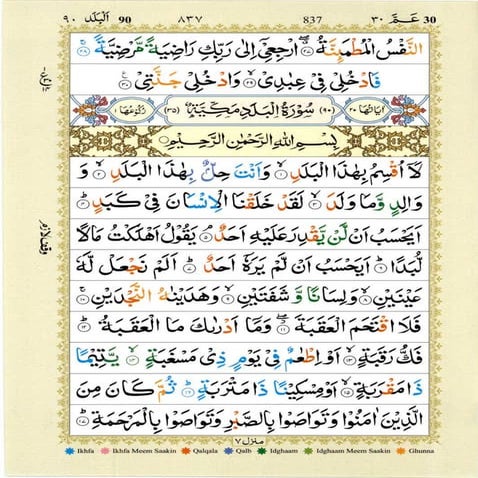 ٩٠ اَلْبَلَد 90 ٨٣٧ 837 ٣٠ عَمَّ 30
النَّفْسُ الْمُطْمَىِٕنَّةُ ﴿۲۷﴾ ارْجِعِیْۤ اِلٰى رَبِّكِ رَاضِیَةً مَّرْضِیَّةً ﴿۲۸﴾
فَادْخُلِیْ فِیْ عِبٰدِیْ ﴿۲۹﴾ وَادْخُلِیْ جَنَّتِیْ ﴿۳۰﴾
اٰیَاتُهَا ٢٠ (٩٠) سُوْرَةُ الْبَلَدِ مَكِّیَّةٌ (٣٥) رُكُوْعُهَا ١
بِسْمِ اللّٰهِ الرَّحْمٰنِ الرَّحِیْمِ
لَاۤ اُقْسِمُ بِهٰذَا الْبَلَدِ ﴿۱﴾ وَاَنْتَ حِلٌّۢ بِهٰذَا الْبَلَدِ ﴿۲﴾ وَ
وَالِدٍ وَّمَا وَلَدَ ﴿۳﴾ لَقَدْ خَلَقْنَا الْاِنْسَانَ فِیْ كَبَدٍ ﴿۴﴾
اَیَحْسَبُ اَنْ لَّنْ یَّقْدِرَ عَلَیْهِ اَحَدٌ ﴿۵﴾ یَقُوْلُ اَهْلَكْتُ مَالًا
لُّبَدًا ﴿۶﴾ اَیَحْسَبُ اَنْ لَّمْ یَرَهٗۤ اَحَدٌ ﴿۷﴾ اَلَمْ نَجْعَلْ لَّهٗ
عَیْنَیْنِ ﴿۸﴾ وَلِسَانًا وَّ شَفَتَیْنِ ﴿۹﴾ وَهَدَیْنٰهُ النَّجْدَیْنِ ﴿۱۰﴾
فَلَا اقْتَحَمَ الْعَقَبَةَ ﴿۱۱﴾ وَمَاۤ اَدْرٰىكَ مَا الْعَقَبَةُ ﴿۱۲﴾
فَكُّ رَقَبَةٍ ﴿۱۳﴾ اَوْ اِطْعٰمٌ فِیْ یَوْمٍ ذِیْ مَسْغَبَةٍ ﴿۱۴﴾ یَّتِیْمًا
ذَا مَقْرَبَةٍ ﴿۱۵﴾ اَوْ مِسْكِیْنًا ذَا مَتْرَبَةٍ ﴿۱۶﴾ ثُمَّ كَانَ مِنَ
الَّذِیْنَ اٰمَنُوْا وَتَوَاصَوْا بِالصَّبْرِ وَتَوَاصَوْا بِالْمَرْحَمَةِ ﴿۱۷﴾
منزل ٧
Ikhfa Ikhfa Meem Saakin Qalqala Qalb Idghaam Idghaam Meem Saakin Ghunna